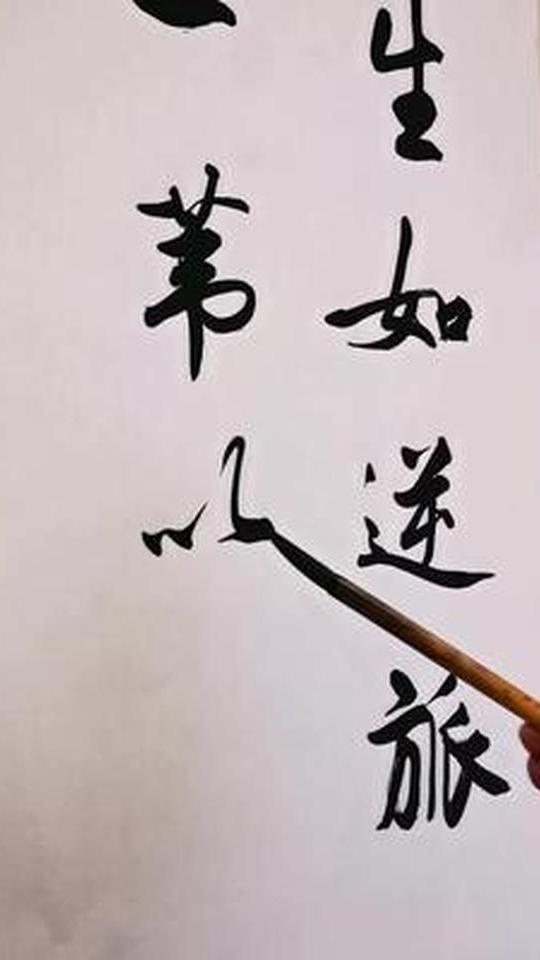 生如逆旅
一苇以